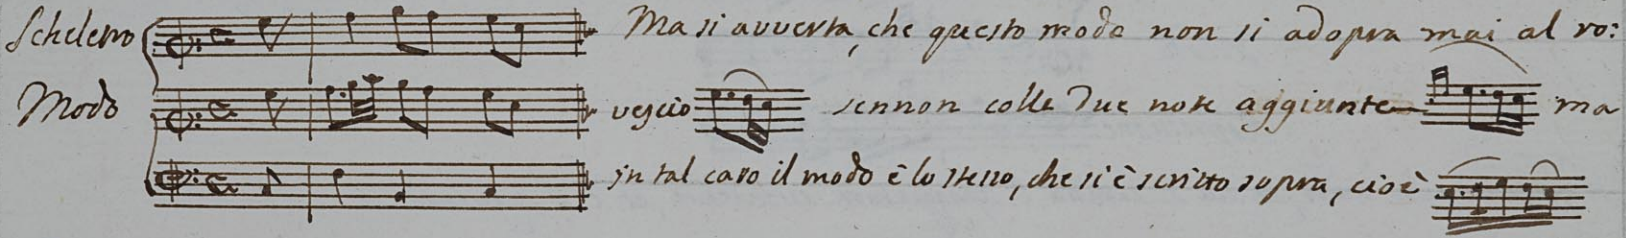 Scheletro Ma si avverta, che questo modo non si adopra mai al ro:
Modo vescio sennon colle due note aggiunte ma
in tal caso il modo è lo stesso, che si è scritto sopra, cioè